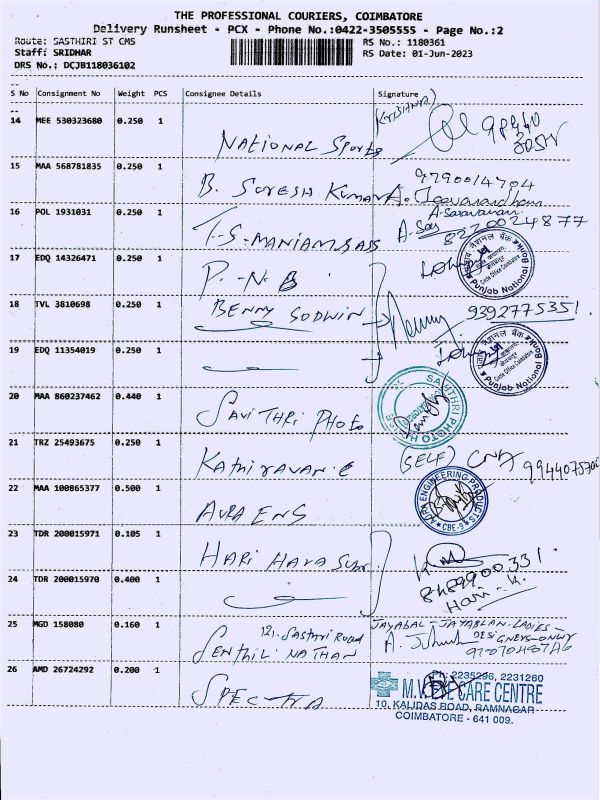 THE PROFESSIONAL COURIERS, COIMBATORE
Delivery Runsheet - PCX - Phone No.:0422-3505555 - Page No.:2
Route: SASTHIRI ST CMS
RS No.: 1180361
Staff: SRIDHAR
RS Date: 01-Jun-2023
DRS No.: DCJB118036102
S No Consignment No Weight PCS Consignee Details Signature
14 MEE 530323680 0.250 1
(KRISHNA)
NATIONAL Sports
15 MAA 568781835 0.250 1
9790014704
B. SURESH KUMAR A. Jeevanandham
16 POL 1931031 0.250 1
A. Saravanan
8220024877
T.S. MANIAM & ASS
17 EDQ 14326471 0.250 1
P. N B
Punjab National Bank
Circle Office Coimbatore
18 TVL 3810698 0.250 1
BENNY GODWIN
Benny 9392775351
19 EDQ 11354019 0.250 1
Punjab National Bank
Circle Office Coimbatore
20 MAA 860237462 0.440 1
SAVITHRI PHOTO
SAVITHRI PHOTO HOUSE
21 TRZ 25493675 0.250 1
Kathiravan. C (SELF)
22 MAA 100865377 0.500 1
AURA ENG
AURA ENGINEERING PRODUCTS
CBE-9
23 TDR 200015971 0.105 1
HARI HARA SUDN
8489900331
24 TDR 200015970 0.400 1
Hari - K.
25 MGD 158080 0.160 1
JAYABAL - JAYABLAN LADIES -
121, Sasthri Road
SENTHIL NATHAN
26 AMD 26724292 0.200 1
SPECTRA
Ph: 2235296, 2231260
M.V. EYE CARE CENTRE
10, KALIDAS ROAD, RAMNAGAR
COIMBATORE - 641 009.